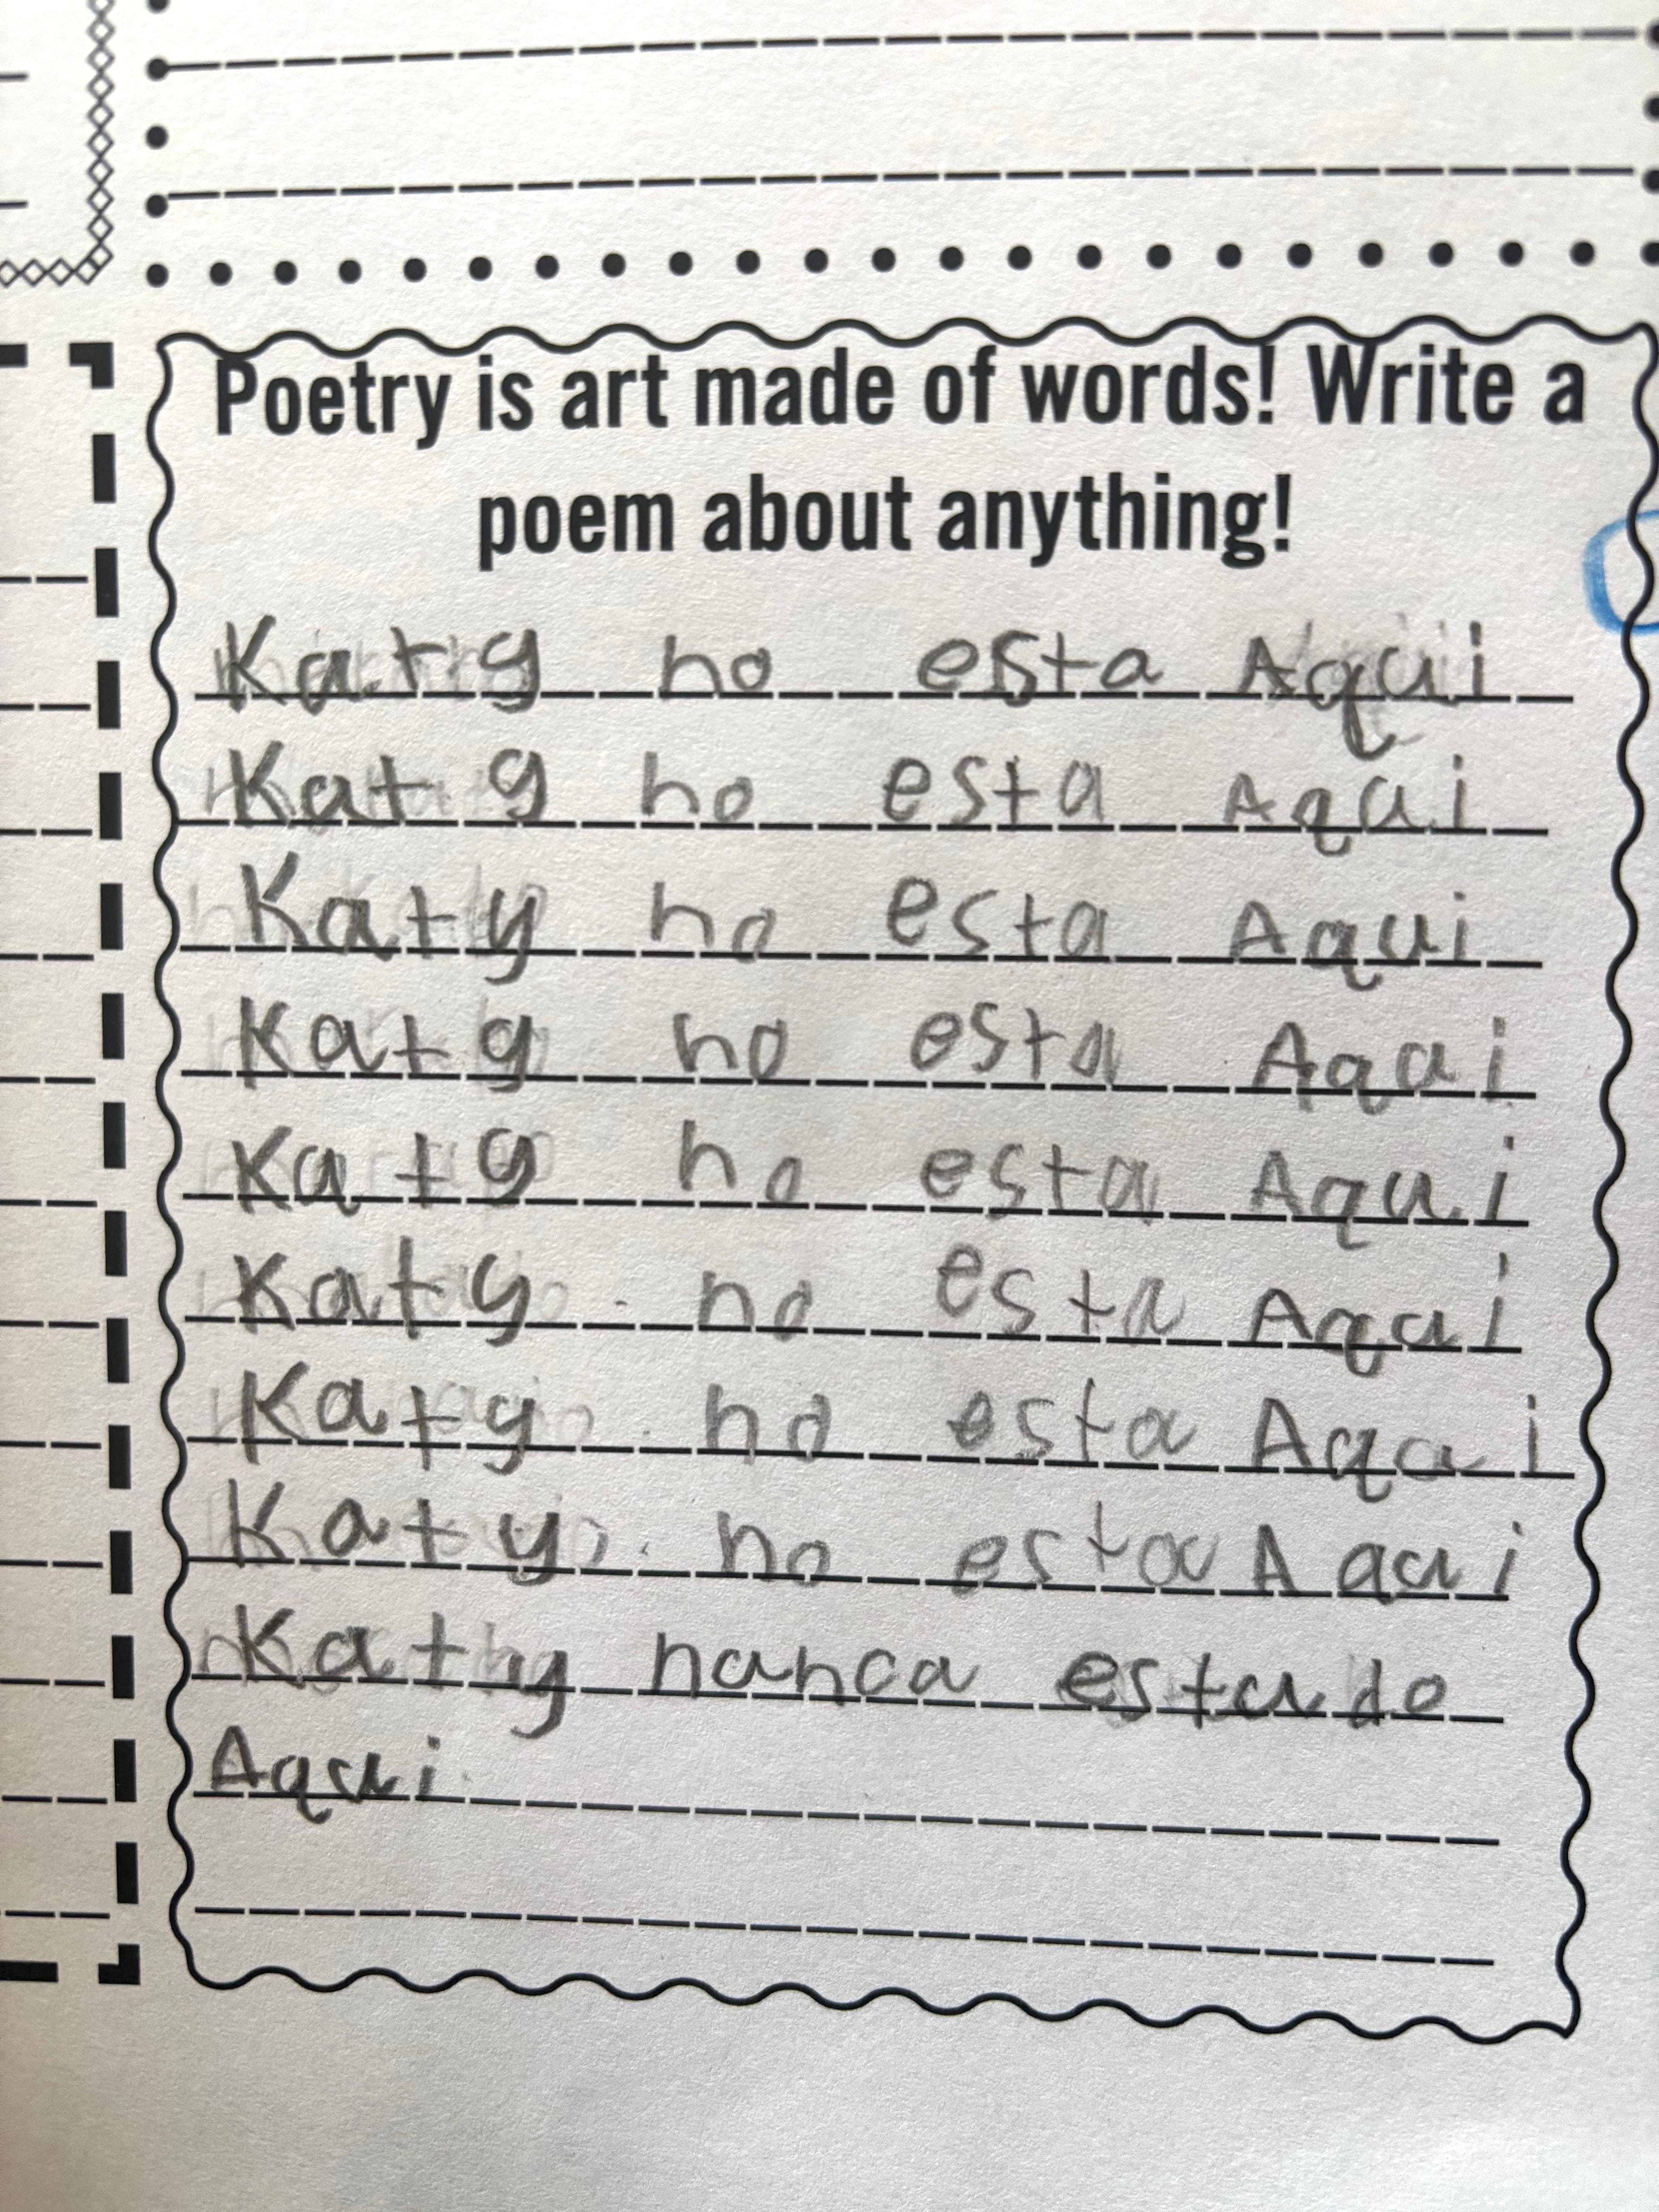 Poetry is art made of words! Write a
poem about anything!
Katy no esta Aqui
Katy no esta Aqui
Katy no esta Aqui
Katy no esta Aqui
Katy no esta Aqui
Katy no esta Aqui
Katy no esta Aqui
Katy no esta Aqui
Katy nunca estudo
Aqui